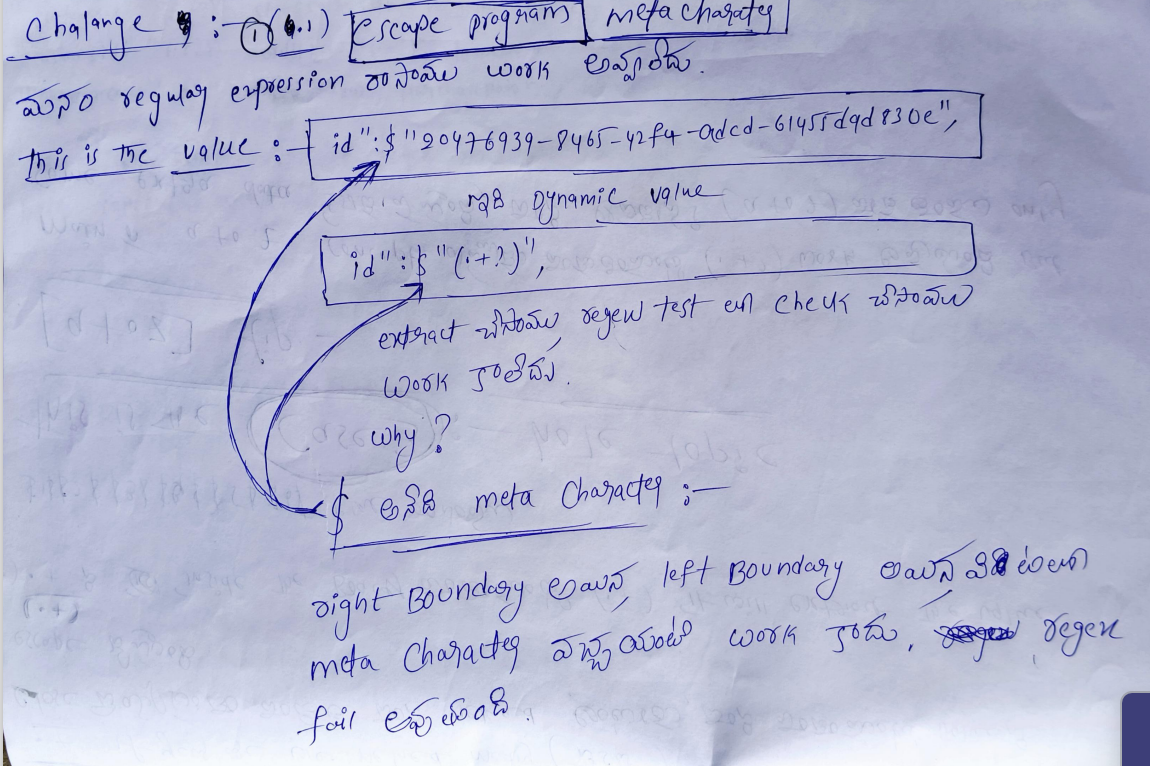 Chalange :- ① (1.1) escape program meta charater
మనం regular expression రాసాము work అవ్వాలేదు.
this is the value :- id":$"20476939-8465-42f4-adcd-61455d9d830e",
ఇది Dynamic value
id":$"(.+?)",
extract చేసాము, regex test లో check చేసాము
work కాలేదు.
why?
$ అనేది meta Character :-
right Boundary అయిన, left Boundary అయిన వీటిలో
meta Character వచ్చాయంటే work కాదు, regex
fail అవుతుంది.